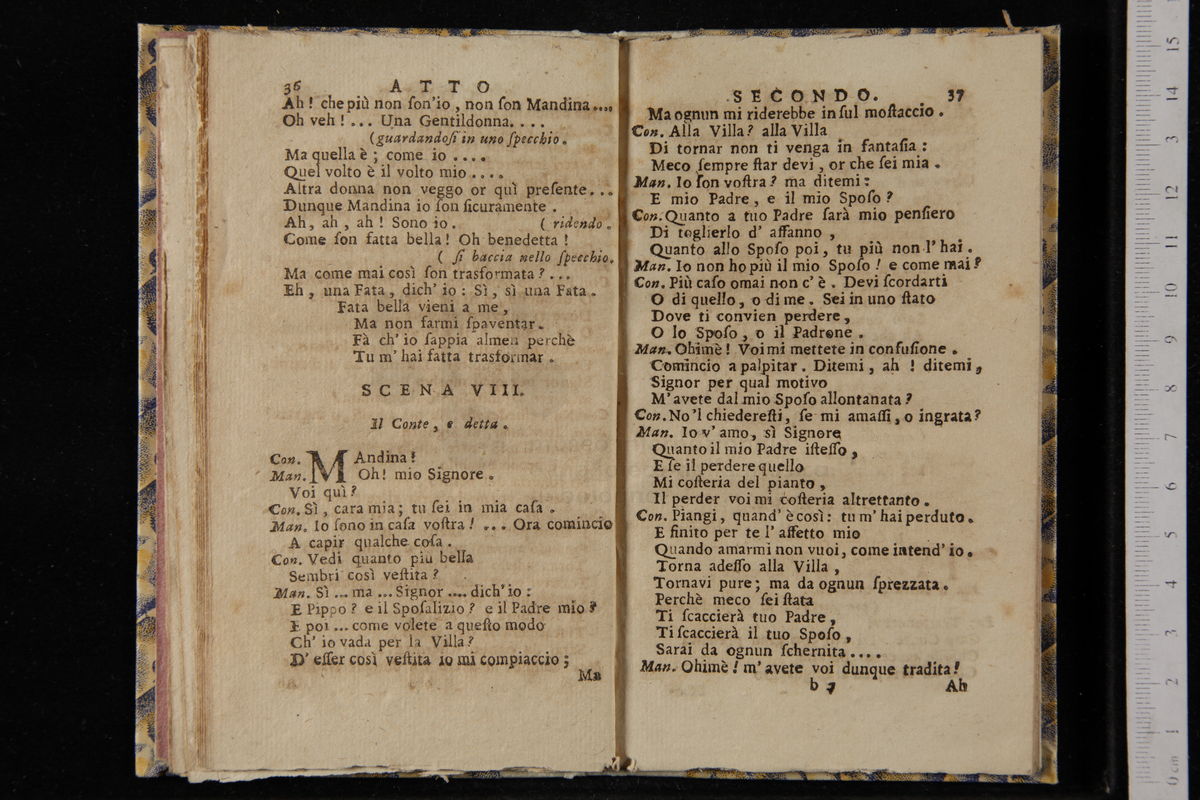 36 ATTO
Ah! che più non ſon'io, non ſon Mandina....
Oh veh!... Una Gentildonna....
(guardandoſi in uno ſpecchio.
Ma quella è; come io....
Quel volto è il volto mio....
Altra donna non veggo or quì preſente...
Dunque Mandina io ſon ſicuramente.
Ah, ah, ah! Sono io. (ridendo.
Come ſon fatta bella! Oh benedetta!
(ſi baccia nello ſpecchio.
Ma come mai così ſon trasformata?...
Eh, una Fata, dich'io: Sì, sì una Fata.
Fata bella vieni a me,
Ma non farmi ſpaventar.
Fà ch'io ſappia almen perchè
Tu m'hai fatta trasformar.
SCENA VIII.
Il Conte, e detta.
Con. MAndina!
Man. Oh! mio Signore.
Voi quì?
Con. Sì, cara mia; tu ſei in mia caſa.
Man. Io ſono in caſa voſtra!... Ora comincio
A capir qualche coſa.
Con. Vedi quanto piu bella
Sembri così veſtita?
Man. Sì... ma... Signor.... dich'io:
E Pippo? e il Spoſalizio? e il Padre mio?
E poi... come volete a queſto modo
Ch'io vada per la Villa?
D'eſſer così veſtita io mi compiaccio;
Ma
SECONDO. 37
Ma ognun mi riderebbe in ſul moſtaccio.
Con. Alla Villa? alla Villa
Di tornar non ti venga in fantaſia:
Meco ſempre ſtar devi, or che ſei mia.
Man. Io ſon voſtra? ma ditemi:
E mio Padre, e il mio Spoſo?
Con. Quanto a tuo Padre ſarà mio penſiero
Di toglierlo d'affanno,
Quanto allo Spoſo poi, tu più non l'hai.
Man. Io non ho più il mio Spoſo! e come mai?
Con. Più caſo omai non c'è. Devi ſcordarti
O di quello, o di me. Sei in uno ſtato
Dove ti convien perdere,
O lo Spoſo, o il Padrone.
Man. Ohimè! Voi mi mettete in confuſione.
Comincio a palpitar. Ditemi, ah! ditemi,
Signor per qual motivo
M'avete dal mio Spoſo allontanata?
Con. No'l chiedereſti, ſe mi amaſſi, o ingrata?
Man. Io v'amo, sì Signore
Quanto il mio Padre iſteſſo,
E ſe il perdere quello
Mi coſteria del pianto,
Il perder voi mi coſteria altrettanto.
Con. Piangi, quand'è così: tu m'hai perduto.
E finito per te l'affetto mio
Quando amarmi non vuoi, come intend'io.
Torna adeſſo alla Villa,
Tornavi pure; ma da ognun ſprezzata.
Perchè meco ſei ſtata
Ti ſcaccierà tuo Padre,
Ti ſcaccierà il tuo Spoſo,
Sarai da ognun ſchernita....
Man. Ohimè! m'avete voi dunque tradita!
b Ah
0 cm 1 2 3 4 5 6 7 8 9 10 11 12 13 14 15